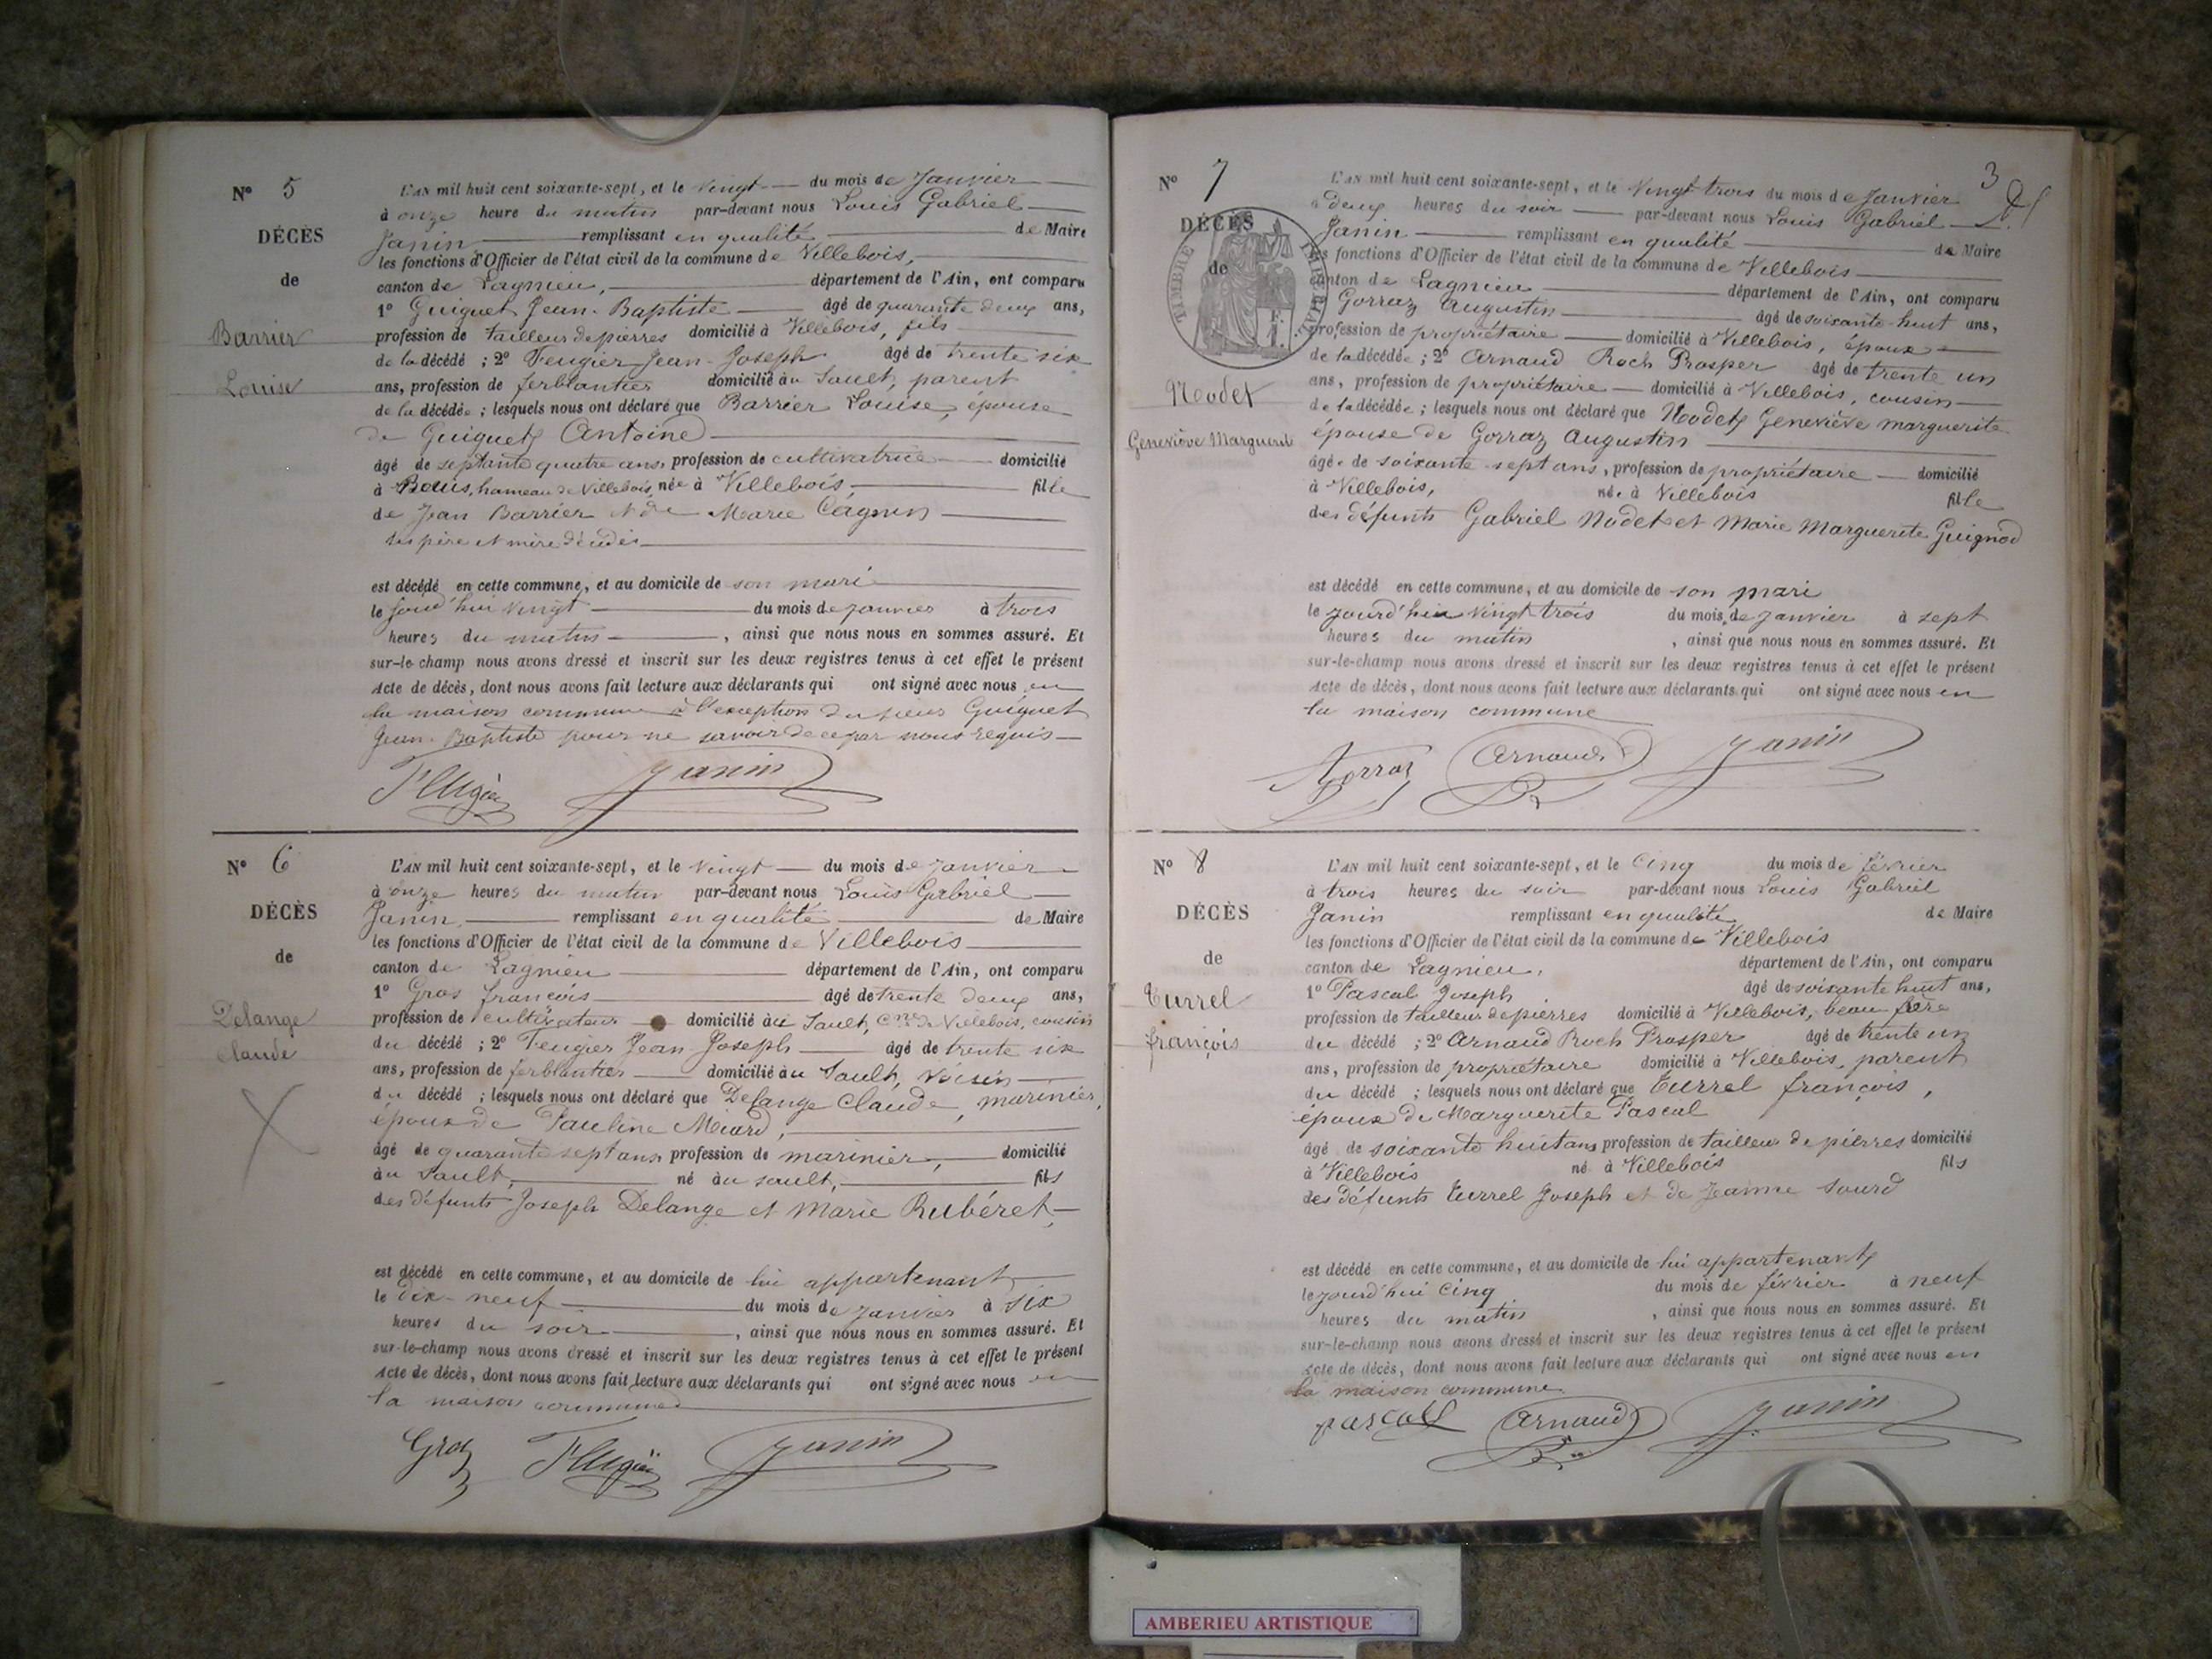 N° 5
DÉCÈS
de
Barrier
Louise
L'AN mil huit cent soixante-sept, et le vingt du mois de Janvier
à onze heure du matin par-devant nous Louis Gabriel
Janin remplissant en qualité de Maire
les fonctions d'Officier de l'état civil de la commune de Villebois,
canton de Lagnieu, département de l'Ain, ont comparu
1° Guiguet Jean-Baptiste âgé de quarante deux ans,
profession de tailleur de pierres domicilié à Villebois, fils
de la décédé ; 2° Feugier Jean-Joseph âgé de trente six
ans, profession de ferblantier domicilié au Sault, parent
de la décédée ; lesquels nous ont déclaré que Barrier Louise, épouse
de Guiguet Antoine
âgé de septante quatre ans, profession de cultivatrice domicilié
à Bouis, hameau de Villebois, née à Villebois, fille
de Jean Barrier et de Marie Cagnin
ses père et mère décédés
est décédé en cette commune, et au domicile de son mari
le jourd'hui vingt du mois de janvier à trois
heures du matin, ainsi que nous nous en sommes assuré. Et
sur-le-champ nous avons dressé et inscrit sur les deux registres tenus à cet effet le présent
Acte de décès, dont nous avons fait lecture aux déclarants qui ont signé avec nous en
la maison commune à l'exception du sieur Guiguet
Jean-Baptiste pour ne savoir de ce par nous requis
Feugier Janin
N° 6
DÉCÈS
de
Delange
Claude
L'AN mil huit cent soixante-sept, et le vingt du mois de janvier
à onze heures du matin par-devant nous Louis Gabriel
Janin remplissant en qualité de Maire
les fonctions d'Officier de l'état civil de la commune de Villebois
canton de Lagnieu département de l'Ain, ont comparu
1° Gros françois âgé de trente deux ans,
profession de cultivateur domicilié au Sault, Cne de Villebois, cousin
du décédé ; 2° Feugier Jean-Joseph âgé de trente six
ans, profession de ferblantier domicilié au Sault, voisin
du décédé ; lesquels nous ont déclaré que Delange Claude, marinier,
époux de Pauline Miard,
âgé de quarante sept ans, profession de marinier, domicilié
au Sault, né au sault, fils
des défunts Joseph Delange et Marie Rubéret
est décédé en cette commune, et au domicile de lui appartenant
le Dix-neuf du mois de janvier à six
heures du soir, ainsi que nous nous en sommes assuré. Et
sur-le-champ nous avons dressé et inscrit sur les deux registres tenus à cet effet le présent
Acte de décès, dont nous avons fait lecture aux déclarants qui ont signé avec nous en
la maison commune
Gros Feugier Janin
3
N° 7
DÉCÈS
de
TIMBRE IMPÉRIAL
Nodet
Geneviève Marguerite
L'AN mil huit cent soixante-sept, et le Vingt-trois du mois de Janvier
à deux heures du soir par-devant nous Louis Gabriel
Janin remplissant en qualité de Maire
les fonctions d'Officier de l'état civil de la commune de Villebois
canton de Lagnieu département de l'Ain, ont comparu
Gorraz Augustin âgé de soixante-huit ans,
profession de propriétaire domicilié à Villebois, époux
de la décédée ; 2° Arnaud Roch Prosper âgé de trente un
ans, profession de propriétaire domicilié à Villebois, cousin
de la décédée ; lesquels nous ont déclaré que Nodet Geneviève marguerite
épouse de Gorraz Augustin
âgée de soixante sept ans, profession de propriétaire domicilié
à Villebois, née à Villebois fille
des défunts Gabriel Nodet et Marie Marguerite Guignod
est décédé en cette commune, et au domicile de son mari
le jourd'hui vingt trois du mois de janvier à sept
heures du matin, ainsi que nous nous en sommes assuré. Et
sur-le-champ nous avons dressé et inscrit sur les deux registres tenus à cet effet le présent
Acte de décès, dont nous avons fait lecture aux déclarants qui ont signé avec nous en
la maison commune
Gorraz Arnaud Janin
N° 8
DÉCÈS
de
Turrel
françois
L'AN mil huit cent soixante-sept, et le Cinq du mois de février
à trois heures du soir par-devant nous Louis Gabriel
Janin remplissant en qualité de Maire
les fonctions d'Officier de l'état civil de la commune de Villebois
canton de Lagnieu, département de l'Ain, ont comparu
1° Pascal Joseph âgé de soixante huit ans,
profession de tailleur de pierres domicilié à Villebois, beau frère
du décédé ; 2° Arnaud Roch Prosper âgé de trente un
ans, profession de propriétaire domicilié à Villebois, parent
du décédé ; lesquels nous ont déclaré que Turrel françois,
époux de Marguerite Pascal
âgé de soixante huit ans profession de tailleur de pierres domicilié
à Villebois né à Villebois fils
des défunts Turrel Joseph et de Jeanne Sourd
est décédé en cette commune, et au domicile de lui appartenant
le jourd'hui Cinq du mois de février à neuf
heures du matin, ainsi que nous nous en sommes assuré. Et
sur-le-champ nous avons dressé et inscrit sur les deux registres tenus à cet effet le présent
Acte de décès, dont nous avons fait lecture aux déclarants qui ont signé avec nous en
la maison commune
pascal Arnaud Janin
AMBERIEU ARTISTIQUE